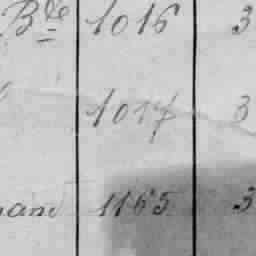 Bde 1016 3
1017 3
1165 3